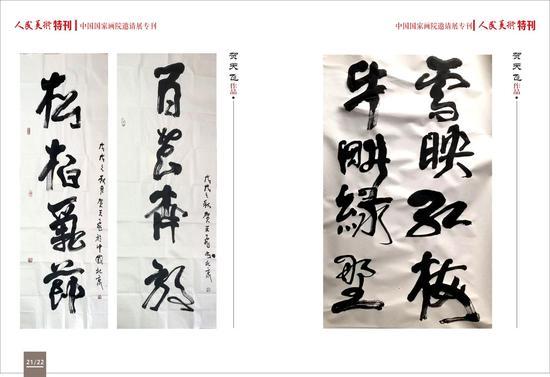 人民美术特刊 中国国家画院邀请展专刊
中国国家画院邀请展专刊 人民美术特刊
贺天飞作品
百花齊放
戊戌之秋贺天飞
松柏
贺天飞作品
雪映红梅
牛耕緑野
21/22